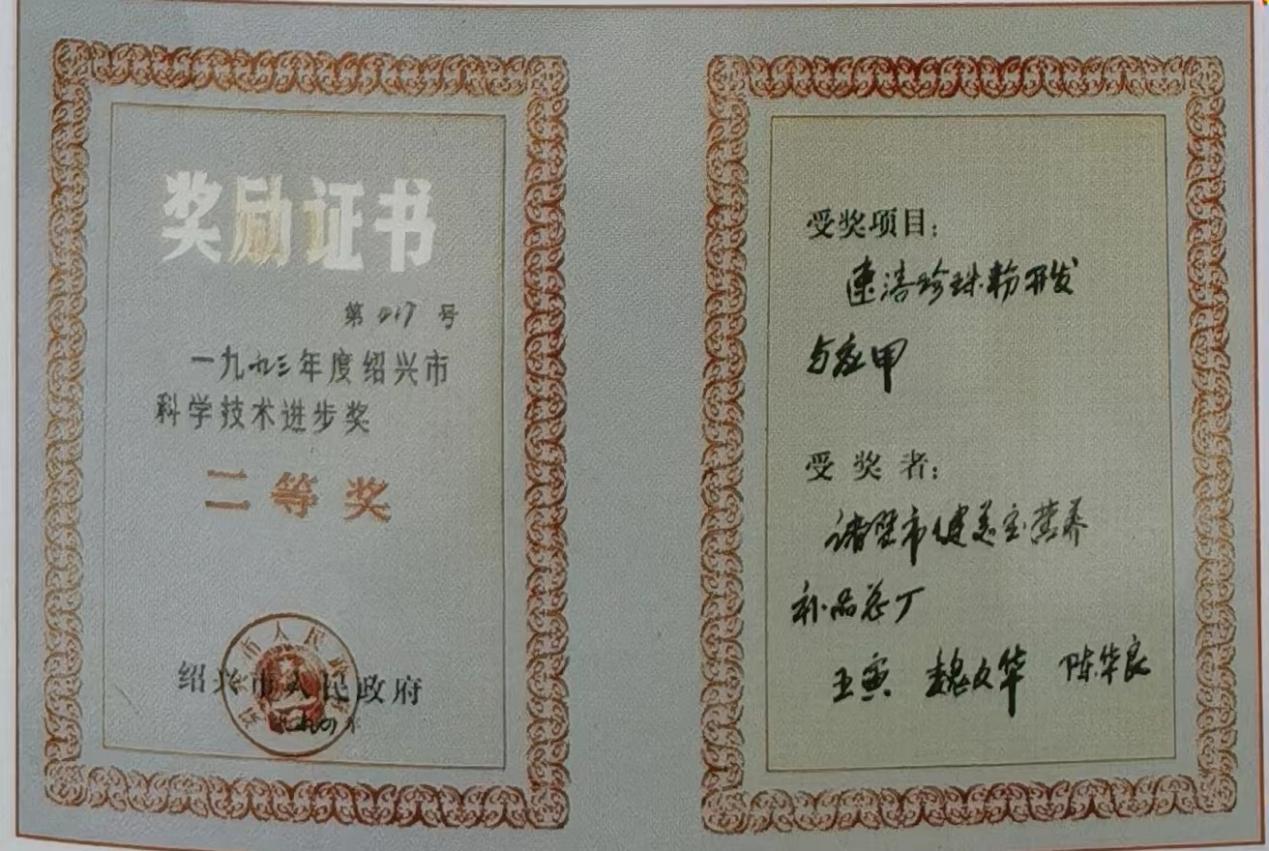 奖励证书
第 017 号
一九九三年度绍兴市
科学技术进步奖
二等奖
绍兴市人民政府
受奖项目：
速溶珍珠粉开发
与应用
受奖者：
诸暨市健美宝营养
补品总厂
王寅 魏文华 陈华良